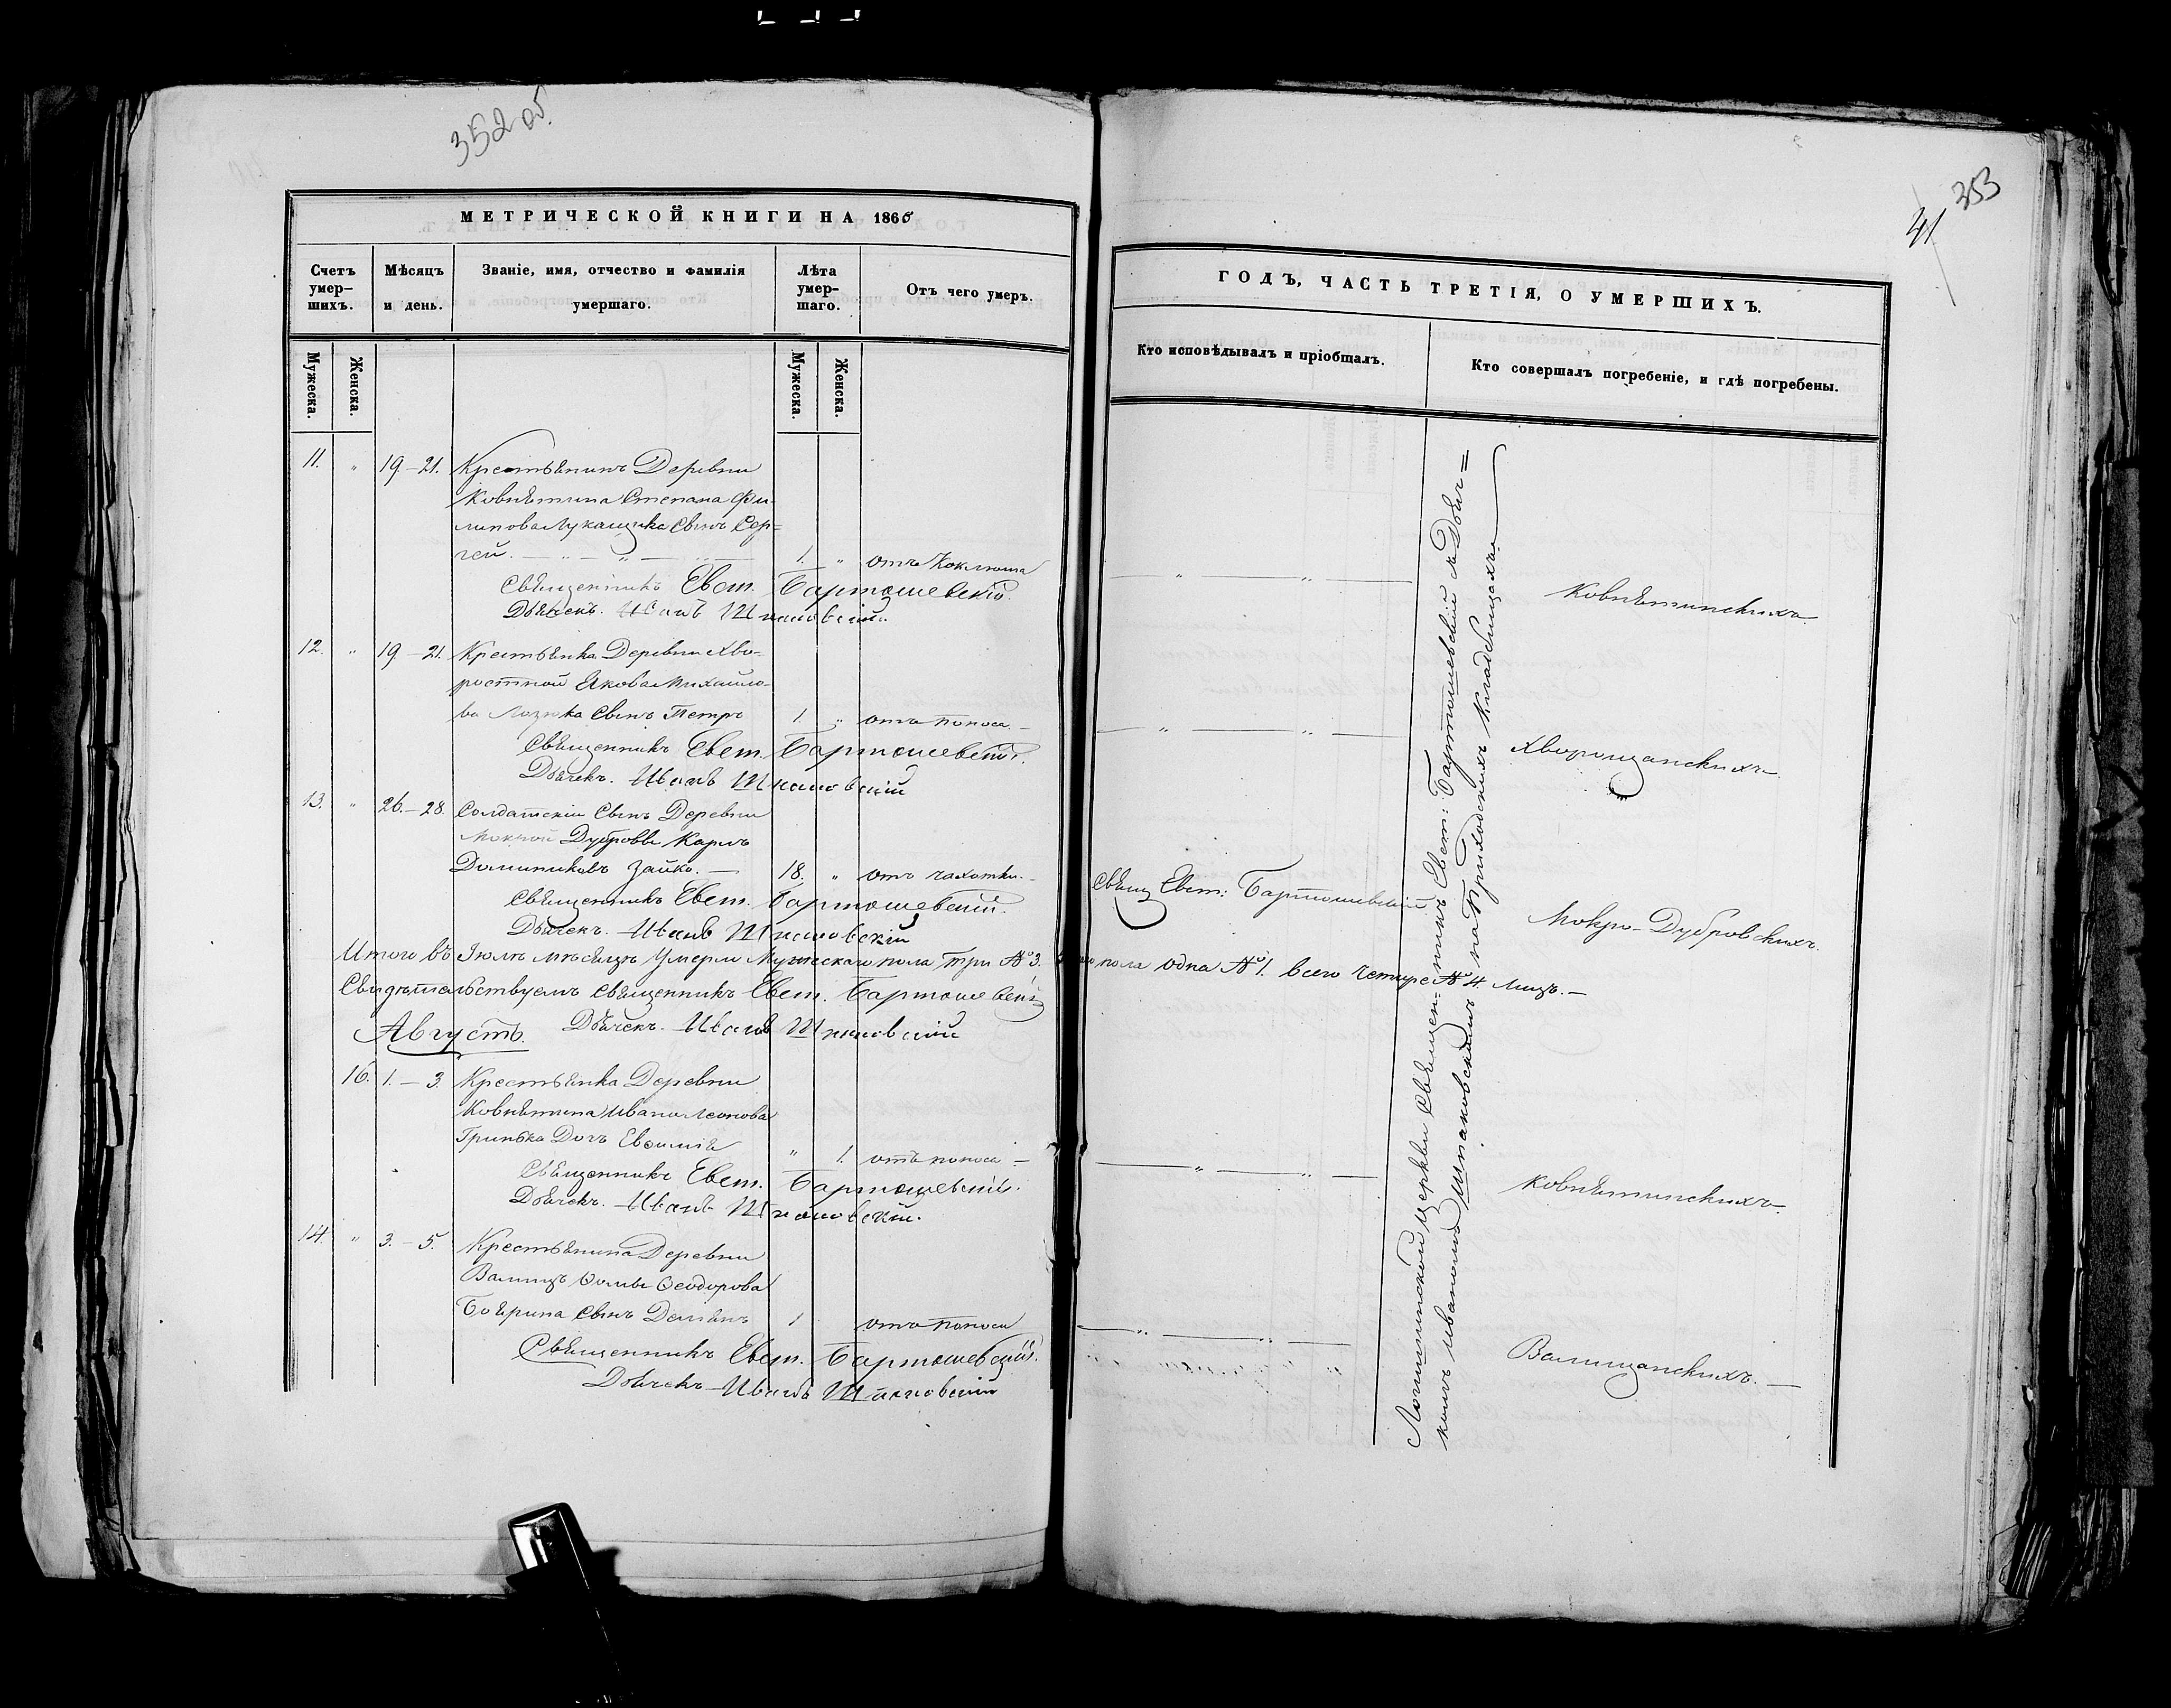 352 об.
МЕТРИЧЕСКОЙ КНИГИ НА 1866
Счетъ умер-шихъ.
Мѣсяцъ и день.
Званіе, имя, отчество и фамилія умершаго.
Лѣта умер-шаго.
Отъ чего умеръ.
Мужеска.
Женска.
Мужеска.
Женска.
11. " 19.-21. Крестьянинъ Деревни
Ковнятина Степана Фи-
липова Лукащика Сынъ Сер=
гей. 1. " отъ Коклюша
Священникъ Евст. Бартошевскій.
Дьячекъ. Иванъ Шпаковскій.
12. " 19.-21. Крестьянка Деревни Хво-
ростной Якова Михайло-
ва Лозюка Сынъ Петръ 1. " отъ поноса.-
Священникъ Евст. Бартошевскій.
Дьячекъ. Иванъ Шпаковскій
13. " 26.-28. Солдатскій Сынъ Деревни
Мокрой Дубровы Карлъ
Доминиковъ Зайко.- 18. " отъ чахотки.-
Священникъ Евст. Бартошевскій.
Дьячекъ. Иванъ Шпаковскій
Итого въ Іюлѣ мѣсяцѣ Умерли Мужескаго пола три № 3. пола одна № 1. всего четыре № 4. лицъ.-
Свидѣтельствуемъ Священникъ Евст. Бартошевскій
Августъ. Дьячекъ. Иванъ Шпаковскій
16. 1.-3. Крестьянка Деревни
Ковнятина Ивана Леонова
Гринька Дочь Евфимія " 1. отъ поноса-
Священникъ Евст. Бартошевскій.
Дьячекъ. Иванъ Шпаковскій.
14. " 3.-5. Крестьянина Деревни
Валищъ Фомы Феодорова
Боярина Сынъ Демьянъ 1 отъ поноса
Священникъ Евст. Бартошевскій.
Дьячекъ Иванъ Шпаковскій
353
41
ГОДЪ, ЧАСТЬ ТРЕТІЯ, О УМЕРШИХЪ.
Кто исповѣдывалъ и пріобщалъ.
Кто совершалъ погребеніе, и гдѣ погребены.
Ковнятинскихъ.
Хворощанскихъ
Свящ Евст: Бартошевскій
Мокро-Дубровскихъ.
Ковнятинскихъ.
Валищанскихъ.-
церкви Священникъ Евст: Бартошевскій съ Дьяч=
комъ Иваномъ Шпаковскимъ на Приходскихъ Кладбищахъ.